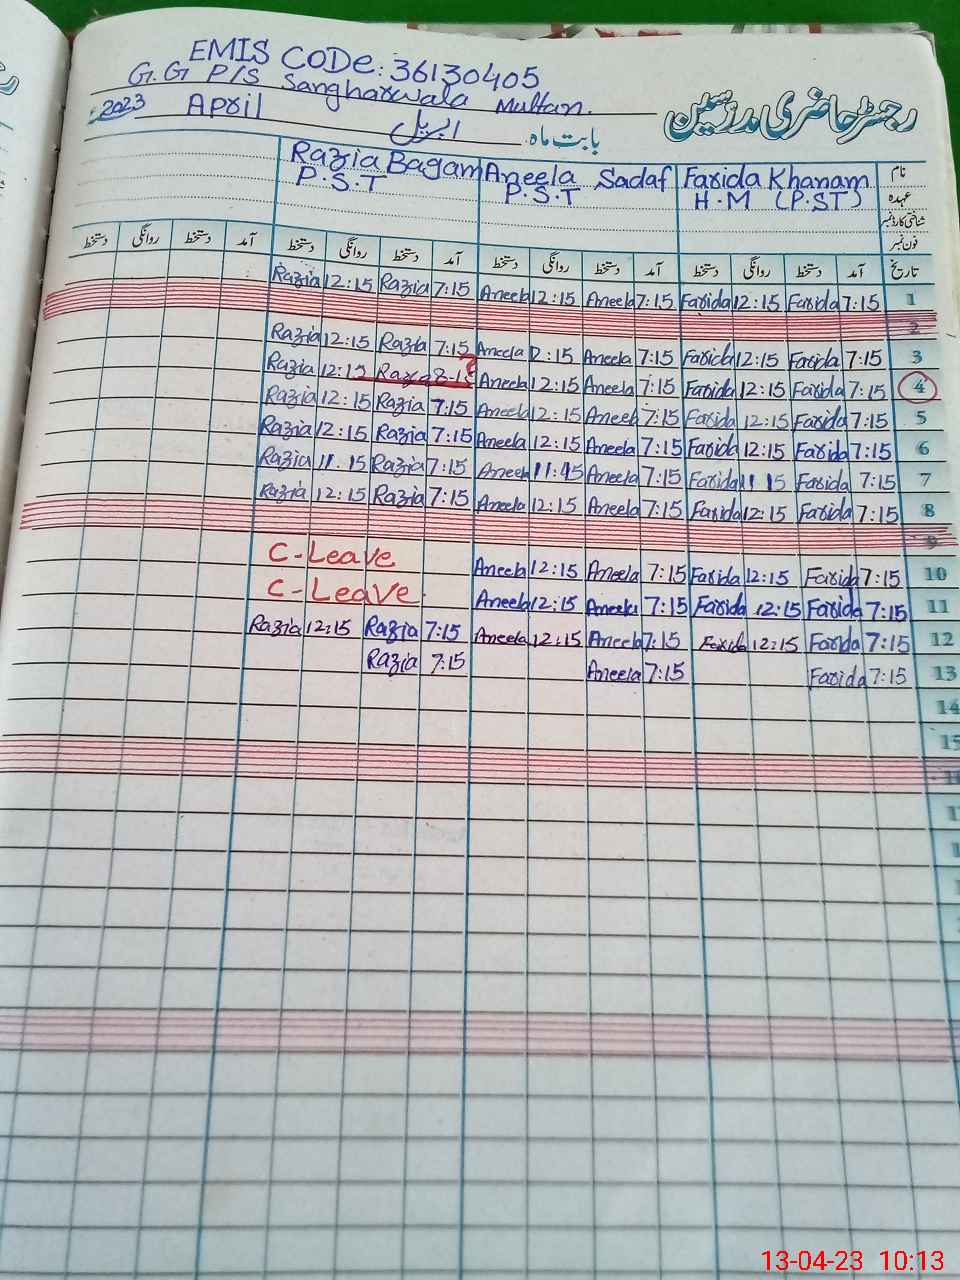 EMIS CODe: 36130405
G.G P/S Sangharwala Multan.
2023 April اپریل بابت ماہ
رجسٹر حاضری مدرسین
Razia Bagam Aneela Sadaf Farida Khanam نام
P.S.T P.S.T H.M (P.ST) عہدہ
شناختی کارڈ نمبر
فون نمبر
دستخط روانگی دستخط آمد دستخط روانگی دستخط آمد دستخط روانگی دستخط آمد دستخط روانگی دستخط آمد تاریخ
Razia 12:15 Razia 7:15 Aneela 12:15 Aneela 7:15 Farida 12:15 Farida 7:15 1
2
Razia 12:15 Razia 7:15 Aneela 12:15 Aneela 7:15 Farida 12:15 Farida 7:15 3
Razia 12:15 Razia 8:15 Aneela 12:15 Aneela 7:15 Farida 12:15 Farida 7:15 4
Razia 12:15 Razia 7:15 Aneela 12:15 Aneela 7:15 Farida 12:15 Farida 7:15 5
Razia 12:15 Razia 7:15 Aneela 12:15 Aneela 7:15 Farida 12:15 Farida 7:15 6
Razia 11:15 Razia 7:15 Aneela 11:45 Aneela 7:15 Farida 11 15 Farida 7:15 7
Razia 12:15 Razia 7:15 Aneela 12:15 Aneela 7:15 Farida 12:15 Farida 7:15 8
9
C-Leave Aneela 12:15 Aneela 7:15 Farida 12:15 Farida 7:15 10
C-Leave Aneela 12:15 Aneela 7:15 Farida 12:15 Farida 7:15 11
Razia 12:15 Razia 7:15 Aneela 12:15 Aneela 7:15 Farida 12:15 Farida 7:15 12
Razia 7:15 Aneela 7:15 Farida 7:15 13
14
15
13-04-23 10:13